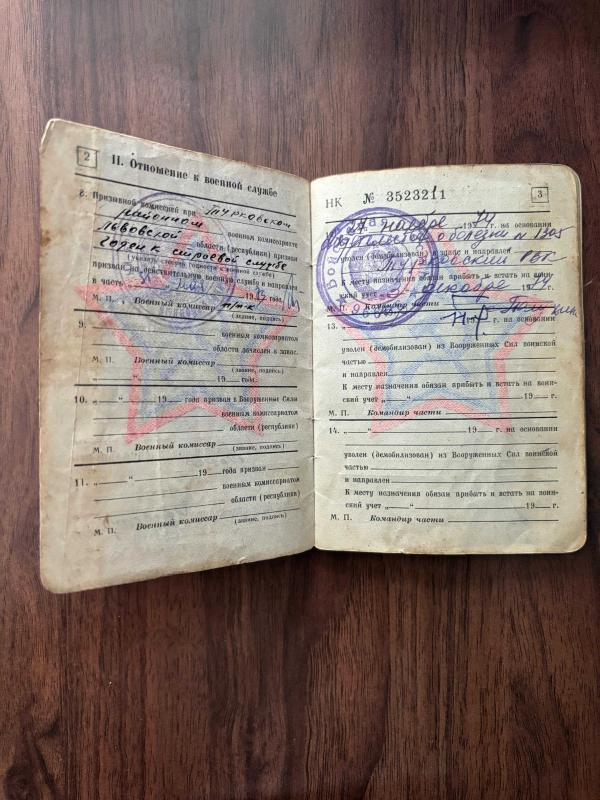 2
II. Отношение к военной службе
8. Призывной комиссией при Турковском
районном военном комиссариате
Львовской области (республики) признан
годен к строевой службе
(указать степень годности к военной службе)
призван на действительную военную службу и направлен
в часть 19 года.
М. П. Военный комиссар п/п-к
(звание, подпись)
9.
военным комиссариатом
области зачислен в запас.
М. П. Военный комиссар
(звание, подпись)
„ “ 19 г.
10. „ “ 19 года призван в Вооруженные Силы
военным комиссариатом
области (республики)
М. П. Военный комиссар
(звание, подпись)
11. „ “ 19 года призван
военным комиссариатом
области (республики)
М. П. Военный комиссар
(звание, подпись)
НК № 3523211
3
27 ноября 1974 г. на основании
о болезни N 1305
уволен (демобилизован) в запас и направлен
Турковский РВК
К месту назначения обязан прибыть и встать на воин-
ский учет декабря 74
М. П. Командир части
13. 19 г. на основании
уволен (демобилизован) из Вооруженных Сил воинской
частью
и направлен
К месту назначения обязан прибыть и встать на воин-
ский учет „ “ 19 г.
М. П. Командир части
14. „ “ 19 г. на основании
уволен (демобилизован) из Вооруженных Сил воинской
частью
и направлен
К месту назначения обязан прибыть и встать на воин-
ский учет „ “ 19 г.
М. П. Командир части